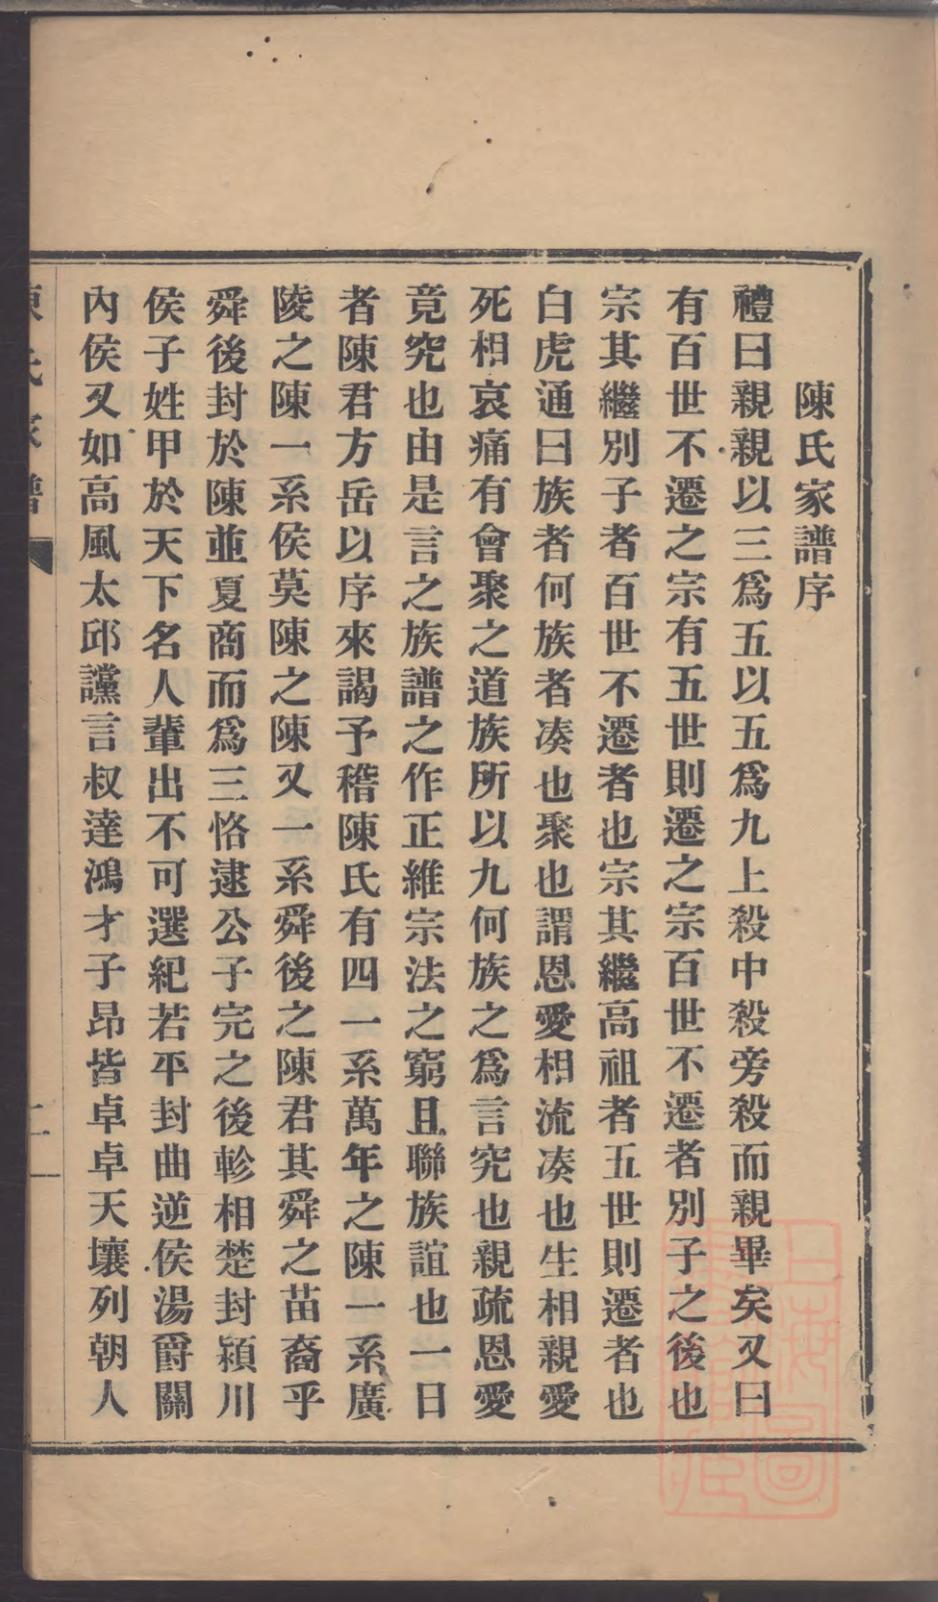 陳氏家譜序
禮曰親親以三爲五以五爲九上殺中殺旁殺而親畢矣又曰
有百世不遷之宗有五世則遷之宗百世不遷者別子之後也
宗其繼別子者百世不遷者也宗其繼高祖者五世則遷者也
白虎通曰族者何族者湊也聚也謂恩愛相流湊也生相親愛
死相哀痛有會聚之道族所以九何族之爲言究也親疏恩愛
竟究也由是言之族譜之作正維宗法之窮且聯族誼也一日
者陳君方岳以序來謁予稽陳氏有四一系萬年之陳一系廣
陵之陳一系侯莫陳之陳又一系舜後之陳君其舜之苗裔乎
舜後封於陳並夏商而爲三恪逮公子完之後軫相楚封潁川
侯子姓甲於天下名人輩出不可選紀若平封曲逆侯湯爵關
內侯又如高風太邱讜言叔達鴻才子昂皆卓卓天壤列朝人
陳氏家譜
二
上海圖書館藏